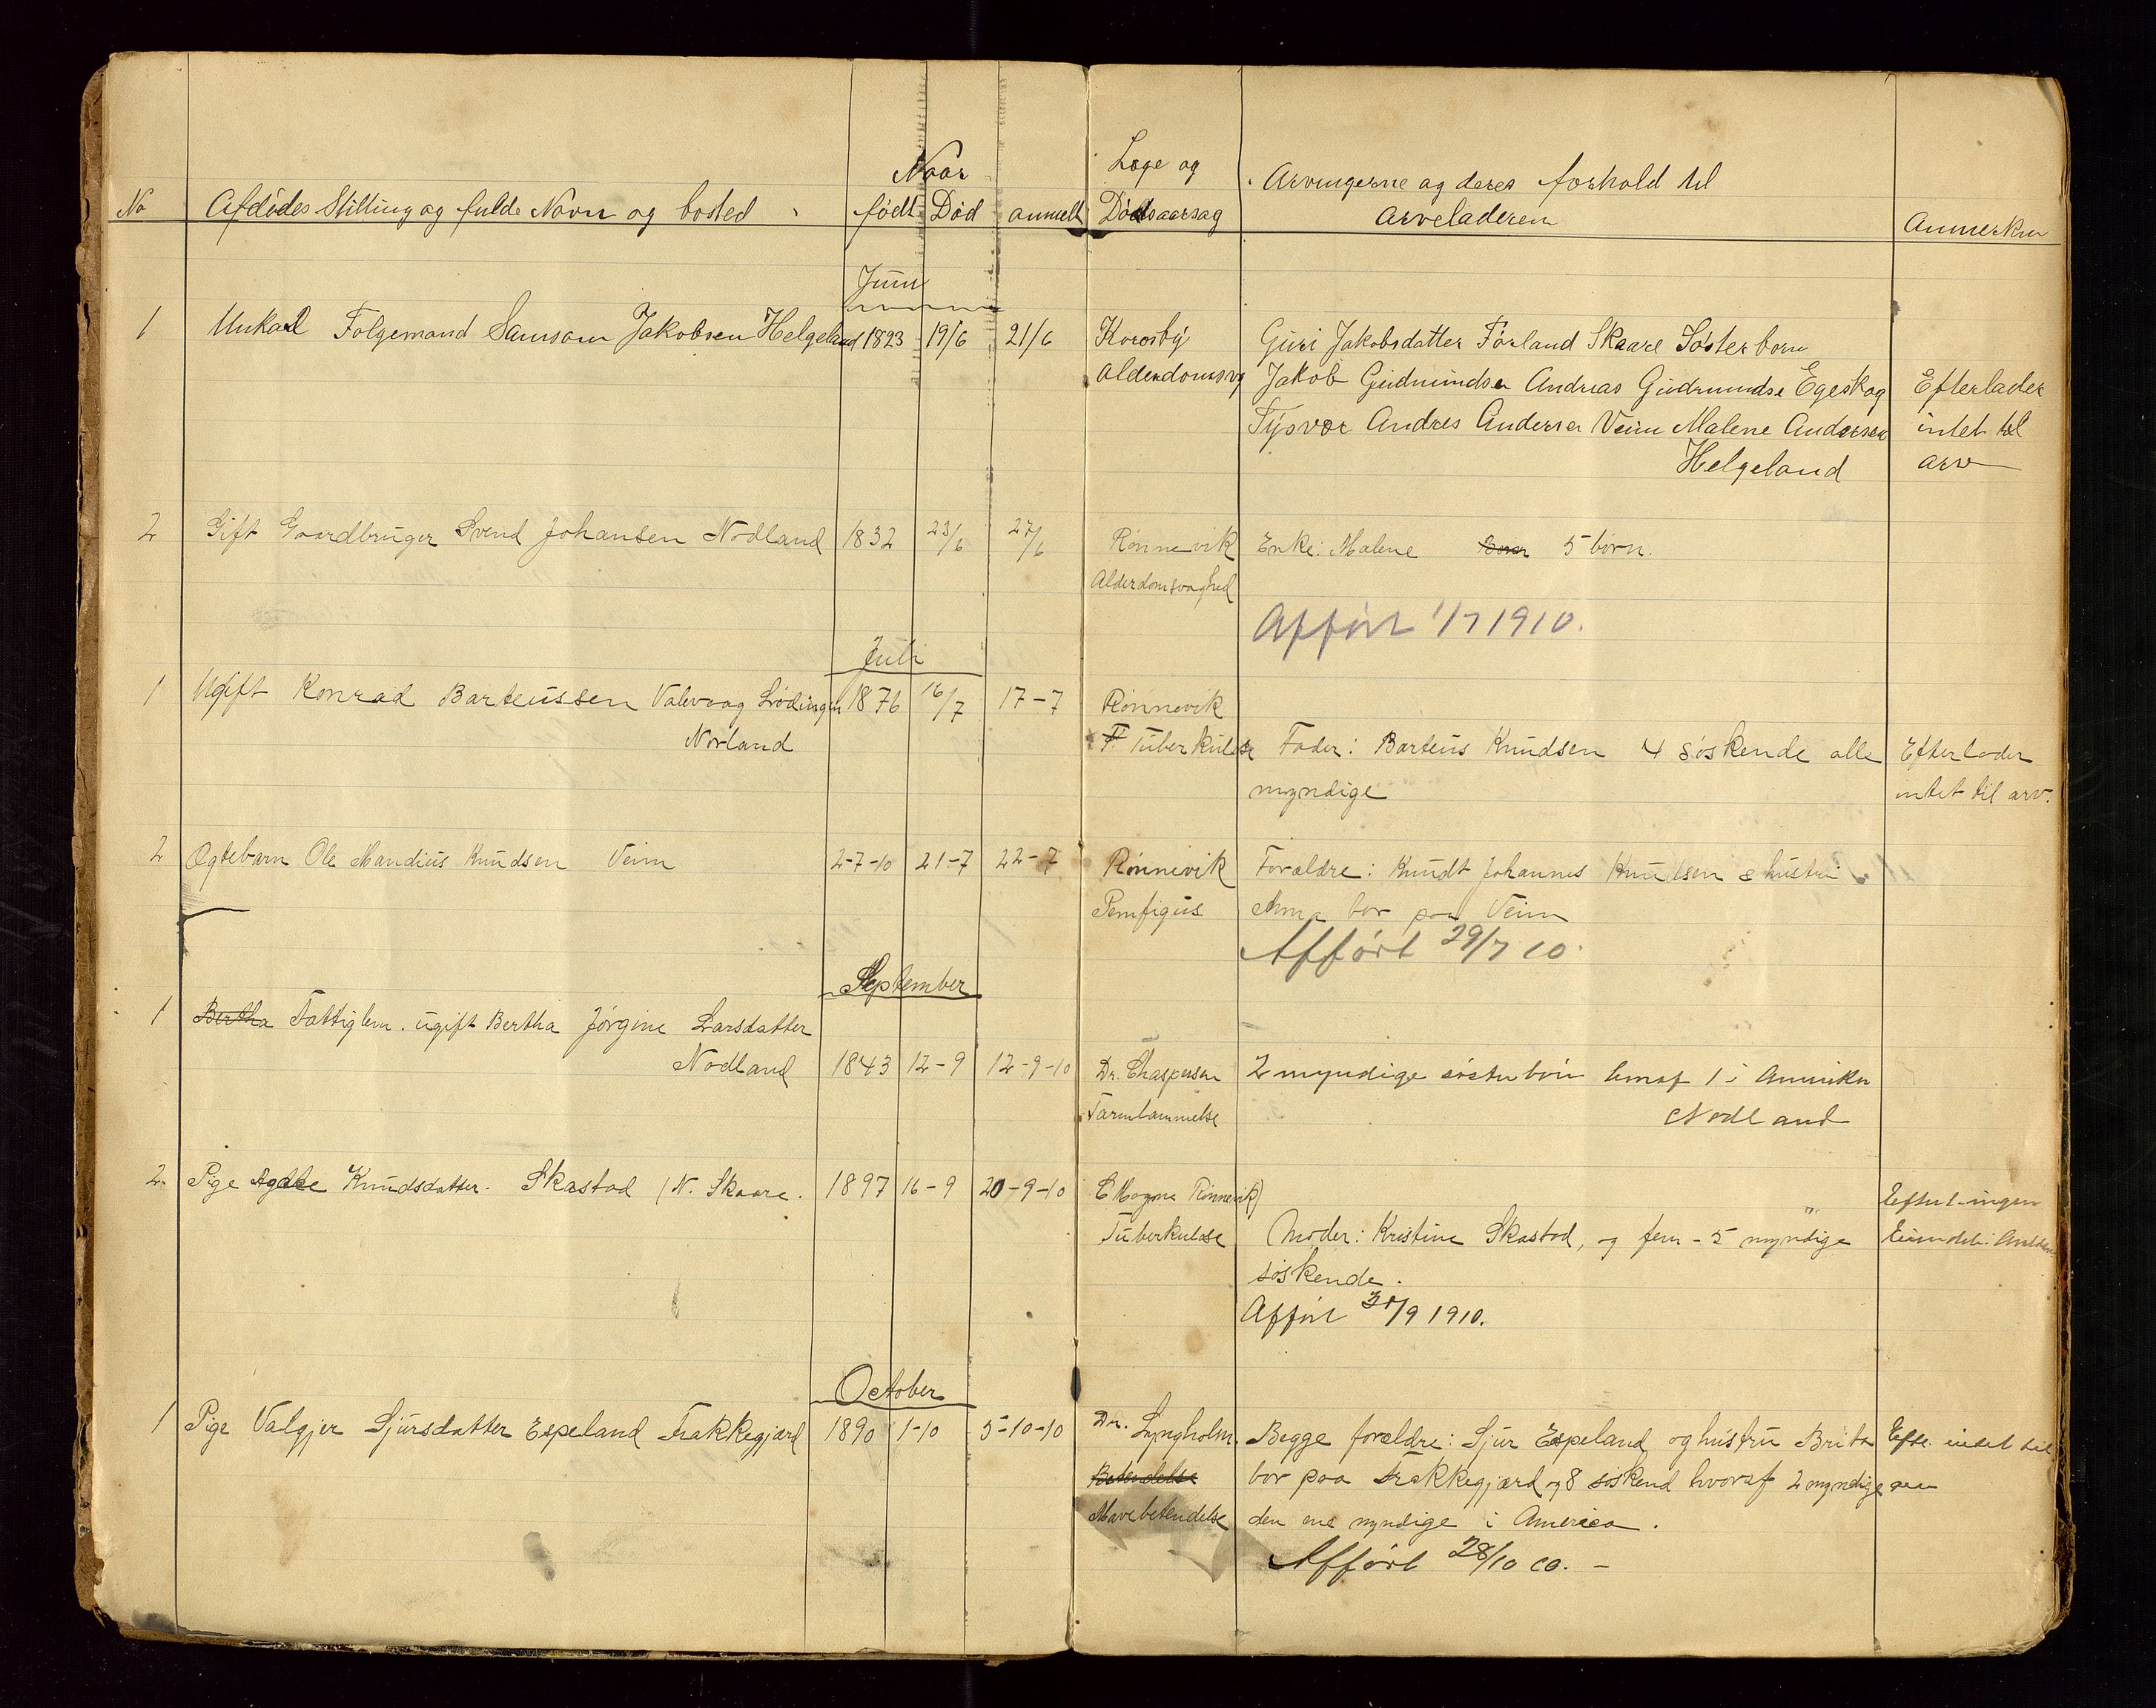 Naar
Læge og
Arvingerne og deres forhold til
No Afdødes Stilling og fulde Navn og bosted født Død anmelt Dødsaarsag
arveladeren
Anmerkn
Juni
1 Unkarl Folgemand Samson Jakobsen Helgeland 1823 19/6 21/6 Korosby Guri Jakobsdatter Førland Skaare Søsterborn
Alderdomsvg Jakob Gudmundsen Andreas Gudmundse Egeskog Efterlader
Tysvær Andres Andersen Veim Malene Andersen intet til
Helgeland arv
2 Gift Gaardbruger Svend Johansen Nodland 1832 23/6 27/6 Rønnevik Enke: Malene Børn 5 børn.
Alderdomsvaghed
Afført 1/7 1910.
Juli
1 Ugift Konrad Barteussen Valevaag Lødingen 1876 16/7 17-7 Rønnevik
Norland F. Tuberkulose Fader: Barteus Knudsen 4 søskende alle Efterlader
myndige intet til arv.
2 Ægtebarn Ole Mandius Knudsen Veim 2-7-10 21-7 22-7 Rønnevik Forældre: Knudt Johannes Knudsen & hustru
Pemfigus Anna bor paa Veim
Afført 29/7 10.
September
1 Bertha Fattiglem. ugift Bertha Jørgine Larsdatter
Nodland 1843 12-9 12-9-10 Dr. Chaspersen 2 myndige søsterbørn 1 i Amerika
Tarmlammelse Nodland
2. Pige Agathe Knudsdatter. Skastad (N. Skaare. 1897 16-9 20-9-10 Rønnevik)
Tuberkulose Moder: Kristine Skastad, og fem - 5 myndige
søskende.
Afført 30/9 1910.
October
1 Pige Valgjer Sjursdatter Espeland Frakkegjærd 1890 1-10 5-10-10 Dr. Lyngholm. Begge forældre: Sjur Espeland og hustru Brita Efte. intet til
Betendelse bor paa Frakkegjærd og 8 søskend hvoraf 2 myndige arv
Mavebetendelse den ene myndige i America.
Afført 28/10 10. -